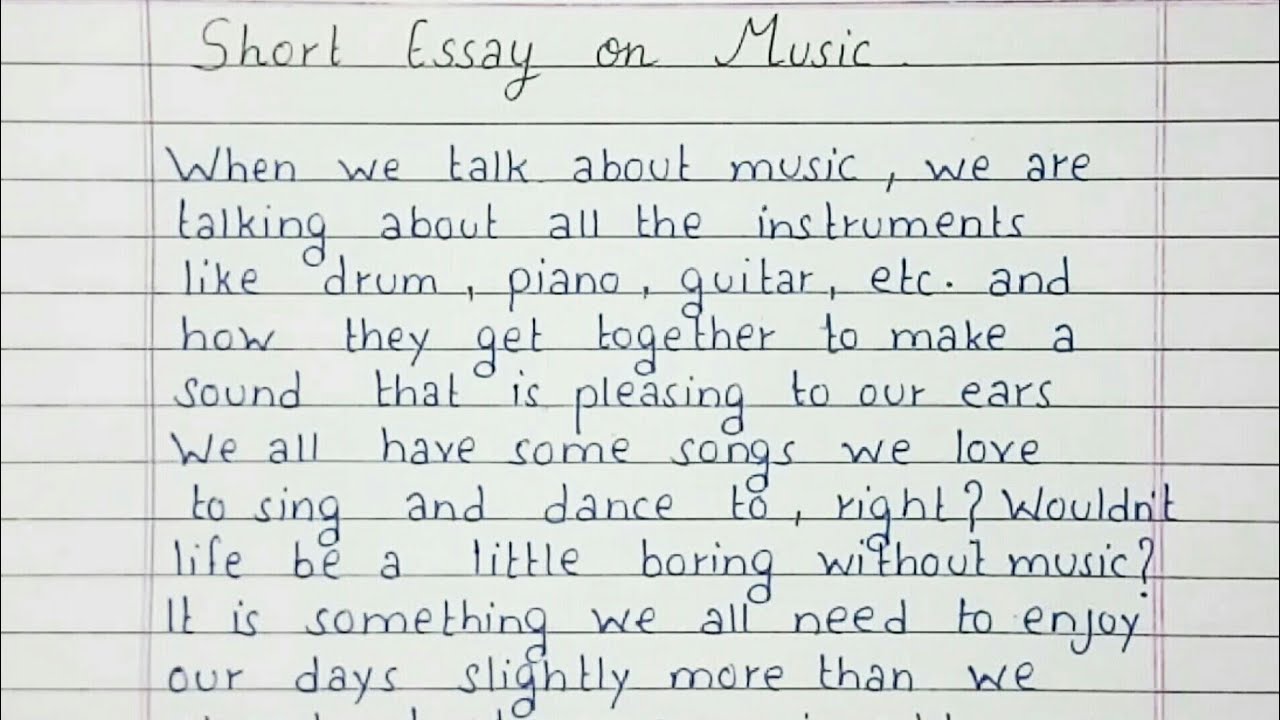 Short Essay on Music
When we talk about music, we are
talking about all the instruments
like drum, piano, guitar, etc. and
how they get together to make a
sound that is pleasing to our ears
We all have some songs we love
to sing and dance to, right? Wouldn't
life be a little boring without music?
It is something we all need to enjoy
our days slightly more than we